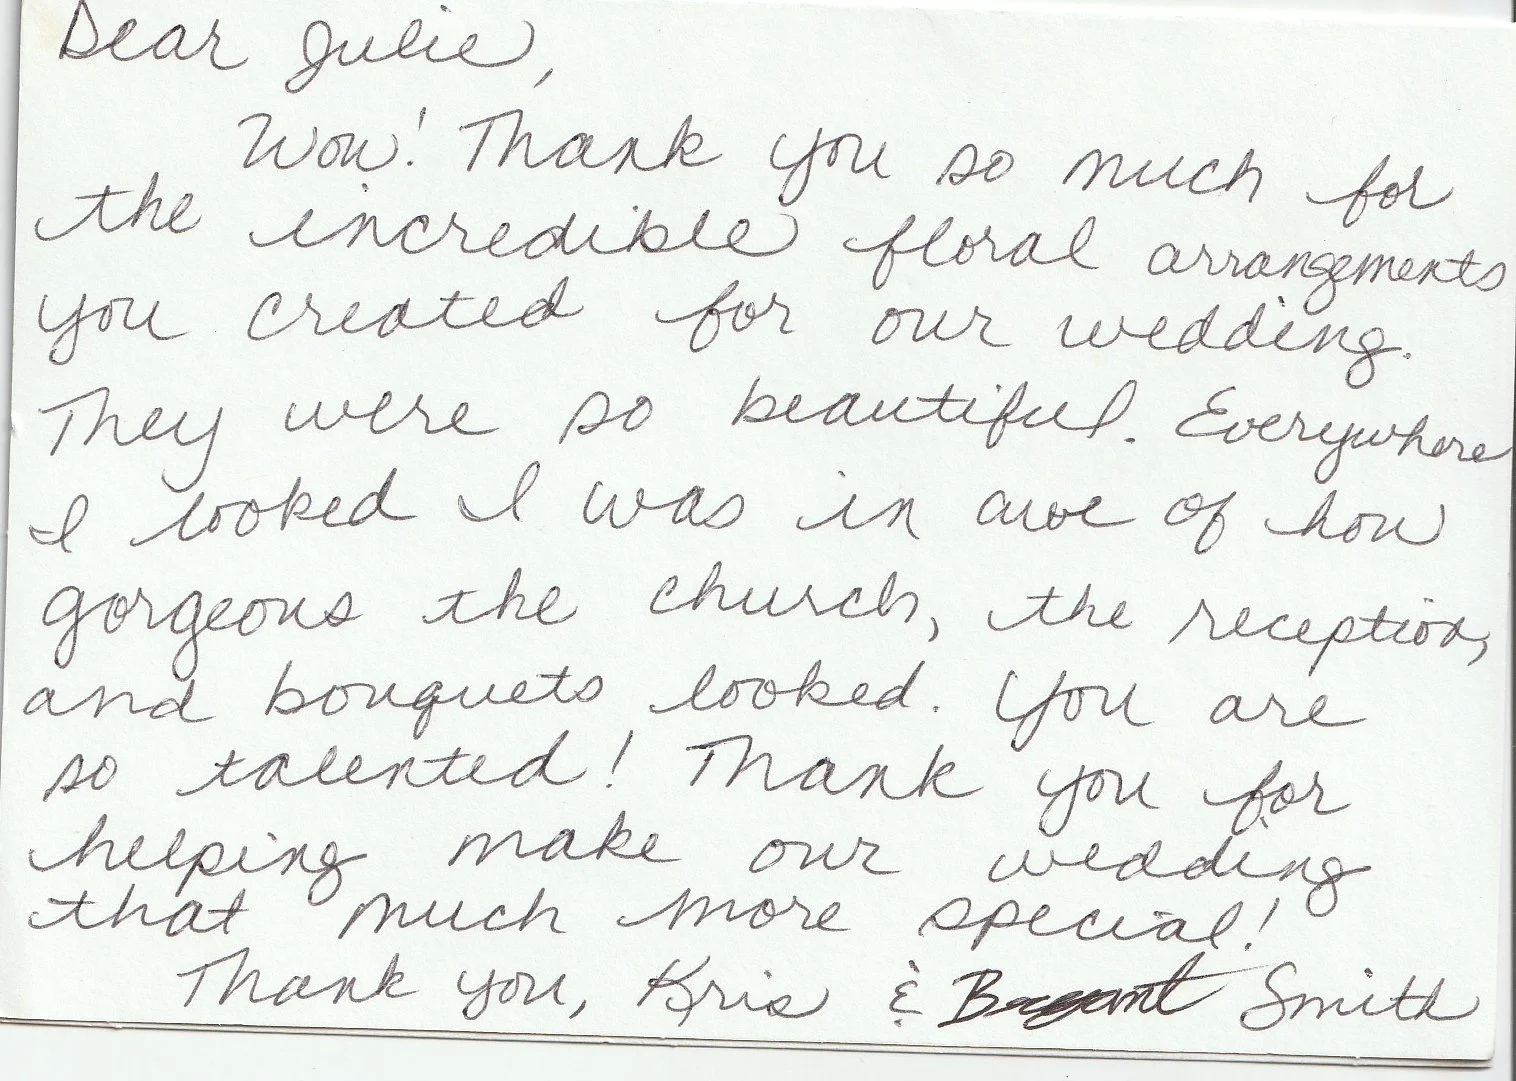 Dear Julie,
Wow! Thank you so much for
the incredible floral arrangements
you created for our wedding.
They were so beautiful. Everywhere
I looked I was in awe of how
gorgeous the church, the reception,
and bouquets looked. You are
so talented! Thank you for
helping make our wedding
that much more special!
Thank you, Kris & Smith